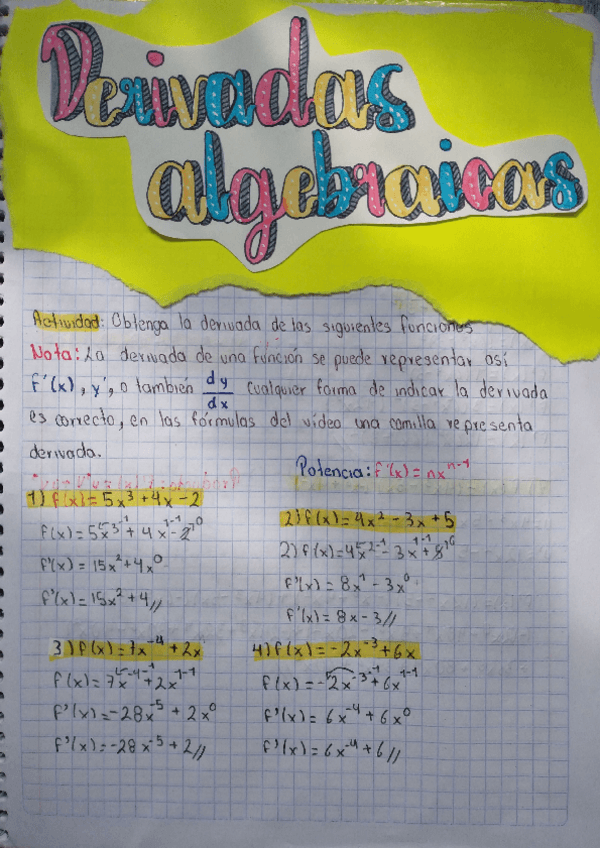 Derivadas
algebraicas
Actividad: Obtenga la derivada de las siguientes funciones
Nota: La derivada de una función se puede representar así
f'(x), y', o también dy/dx Cualquier forma de indicar la derivada
es correcto, en las fórmulas del vídeo una comilla representa
derivada.
Potencia: f'(x) = nx^n-1
1) f(x) = 5x³ + 4x - 2
f(x) = 5x^3-1 + 4x^1-1 - 2^0
f'(x) = 15x² + 4x⁰
f'(x) = 15x² + 4 //
2) f(x) = 4x² - 3x + 5
2) f(x) = 4x^2-1 - 3x^1-1 + 5^0
f'(x) = 8x¹ - 3x⁰
f'(x) = 8x - 3 //
3) f(x) = 7x⁻⁴ + 2x
f(x) = 7x^-4-1 + 2x^1-1
f'(x) = -28x⁻⁵ + 2x⁰
f'(x) = -28x⁻⁵ + 2 //
4) f(x) = -2x⁻³ + 6x
f(x) = -2x^-3-1 + 6x^1-1
f'(x) = 6x⁻⁴ + 6x⁰
f'(x) = 6x⁻⁴ + 6 //